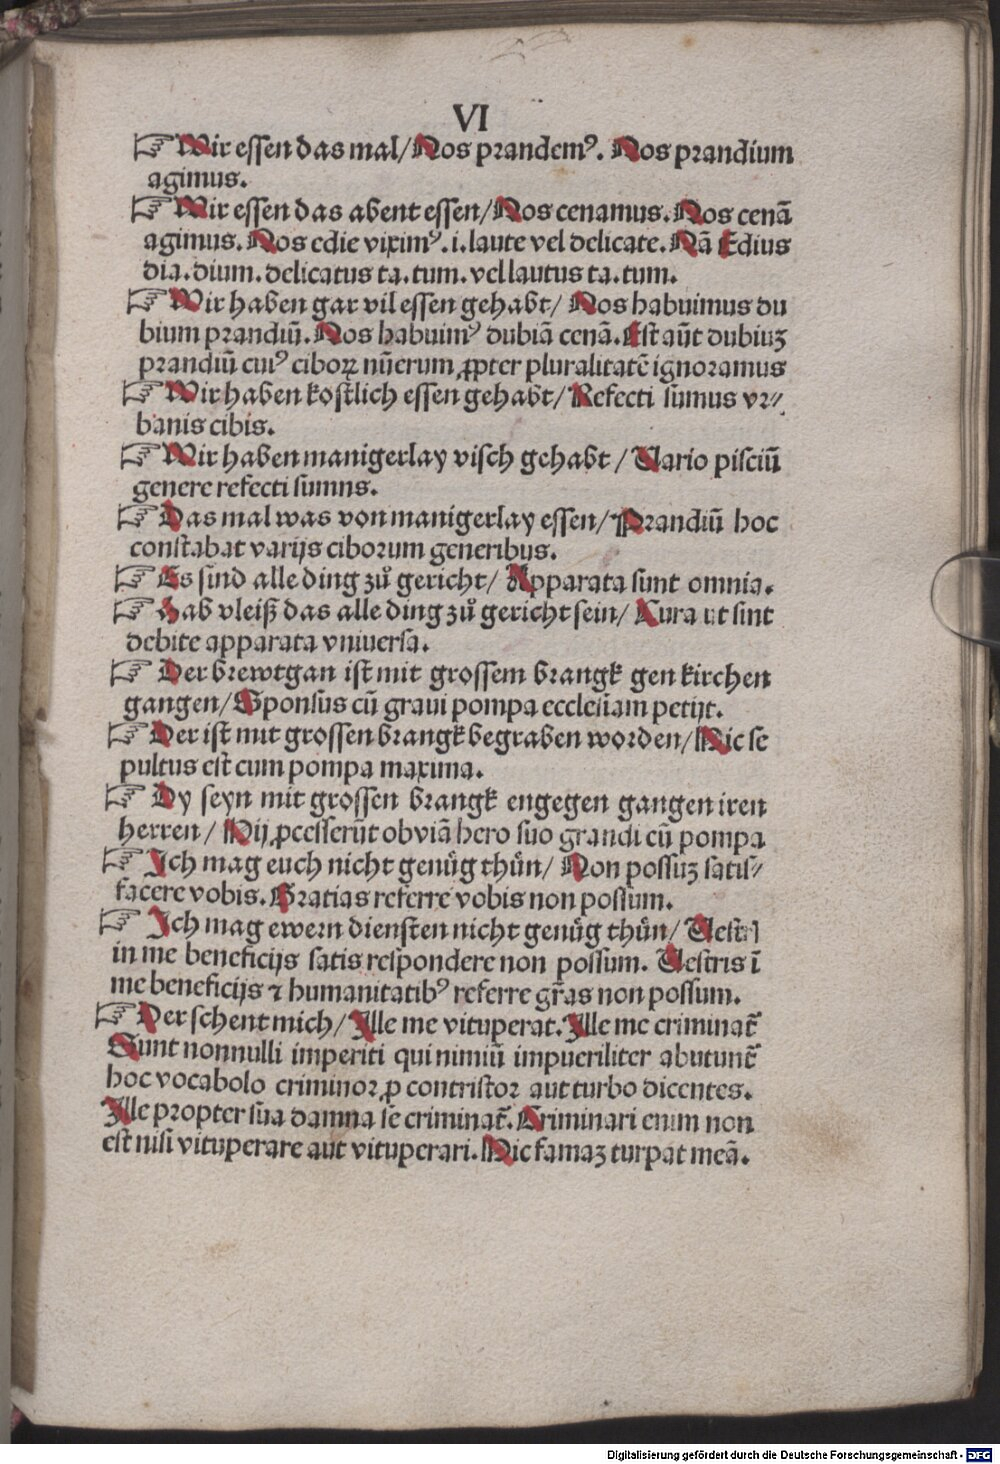 VI
☞ Wir essen das mal/ Nos prandemꝰ. Nos prandium
agimus.
☞ Wir essen das abent essen/ Nos cenamus. Nos cenā
agimus. Nos edie viximꝰ. i. laute vel delicate. Nā Edius
dia. dium. delicatus ta. tum. vel lautus ta. tum.
☞ Wir haben gar vil essen gehabt/ Nos habuimus du
bium prandiū. Nos habuimꝰ dubiā cenā. Est aūt dubiuꝫ
prandiū cuiꝰ ciboꝝ nūerum ꝓpter pluralitatē ignoramus
☞ Wir haben kostlich essen gehabt/ Refecti sumus vr⸗
banis cibis.
☞ Wir haben manigerlay visch gehabt / Vario pisciū
genere refecti sumns.
☞ Das mal was von manigerlay essen/ Prandiū hoc
constabat varijs ciborum generibus.
☞ Es sind alle ding zuͦ gericht/ Apparata sunt omnia.
☞ Hab vleiß das alle ding zuͦ gericht sein/ Cura ut sint
debite apparata vniuersa.
☞ Der brewtgan ist mit grossem brangk gen kirchen
gangen/ Sponsus cū graui pompa ecclesiam petijt.
☞ Der ist mit grossen brangk begraben worden/ Hic se
pultus est cum pompa maxima.
☞ Dy seyn mit grossen brangk engegen gangen iren
herren / Hij ꝓcesserūt obviā hero suo grandi cū pompa
☞ Ich mag euch nicht genuͤg thuͤn/ Non possuꝫ satis⸗
facere vobis. Gratias referre vobis non possum.
☞ Ich mag ewern diensten nicht genuͤg thuͤn/ Vestri
in me beneficijs satis respondere non possum. Vestris ī
me beneficijs ⁊ humanitatibꝰ referre gr̄as non possum.
☞ Der schent mich/ Ille me vituperat. Ille me criminat᷑
Sunt nonnulli imperiti qui nimiū impueriliter abutunt᷑
hoc vocabolo criminor ꝓ contristor aut turbo dicentes.
Ille propter sua damna se criminat᷑. Criminari enim non
est nisi vituperare aut vituperari. Hic famaꝫ turpat meā.
Digitalisierung gefördert durch die Deutsche Forschungsgemeinschaft - DFG